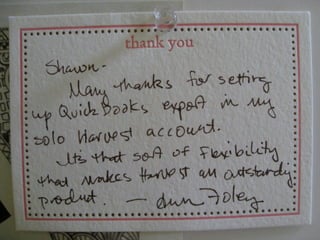 thank you
Shawn-
Many thanks for setting
up QuickBooks export in my
solo Harvest account.
It's that sort of flexibility
that makes Harvest an outstanding
product. — Foley